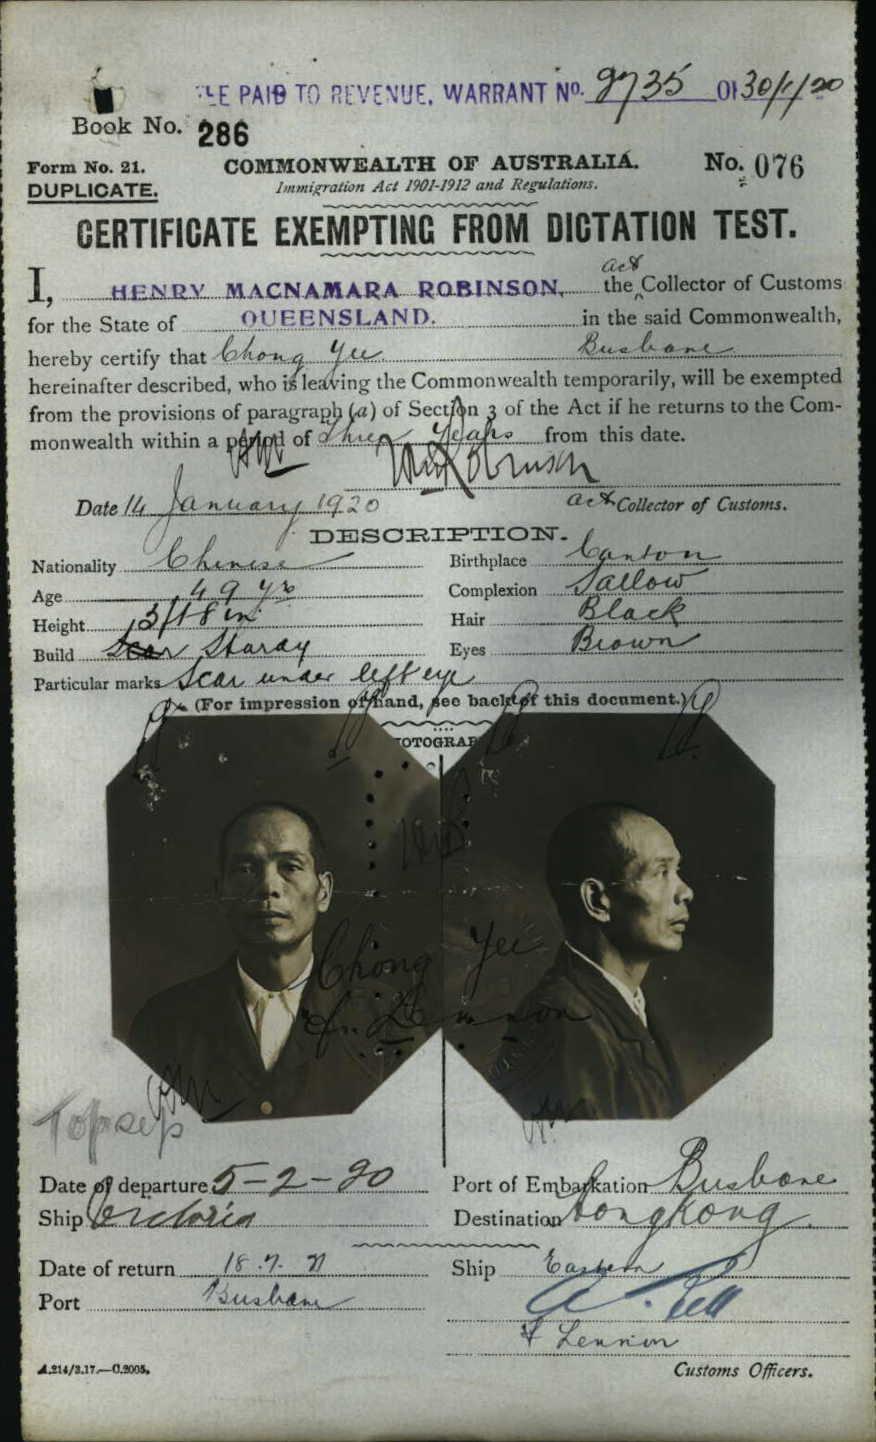 FEE PAID TO REVENUE, WARRANT No. 9735 OF 30/1/20
Book No. 286
Form No. 21.
COMMONWEALTH OF AUSTRALIA.
No. 076
DUPLICATE.
Immigration Act 1901-1912 and Regulations.
CERTIFICATE EXEMPTING FROM DICTATION TEST.
I, HENRY MACNAMARA ROBINSON, the act Collector of Customs
for the State of QUEENSLAND. in the said Commonwealth,
hereby certify that Chong Yee Brisbane
hereinafter described, who is leaving the Commonwealth temporarily, will be exempted
from the provisions of paragraph (a) of Section 3 of the Act if he returns to the Com-
monwealth within a period of Three Years from this date.
HM Robinson
Date 14 January 1920
act Collector of Customs.
DESCRIPTION.
Nationality Chinese Birthplace Canton
Age 49 yrs Complexion Sallow
Height 5ft 8 in Hair Black
Build Scar Sturdy Eyes Brown
Particular marks Scar under left eye
(For impression of hand, see back of this document.)
PHOTOGRAPHS
Chong Yee
Lennon
Date of departure 5-2-20 Port of Embarkation Brisbane
Ship Victoria Destination Hongkong
Date of return 18.7.21 Ship Eastern
Port Brisbane
F Lennon
A.214/3.17.—C.2005.
Customs Officers.